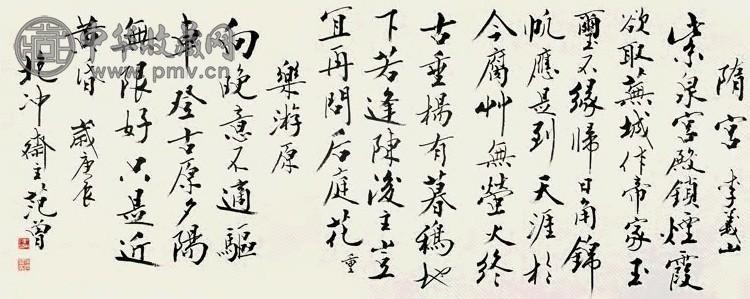 隋宫 李義山
紫泉宫殿鎖煙霞
欲取蕪城作帝家玉
璽不緣歸日角錦
帆應是到天涯於
今腐艸無螢火終
古垂楊有暮鴉地
下若逢陳後主豈
宜再問后庭花 重
樂游原
向晚意不適驅
車登古原夕陽
無限好只是近
黄昏 歲庚辰
抱冲齋主范曾
中华收藏网
www.pmv.cn